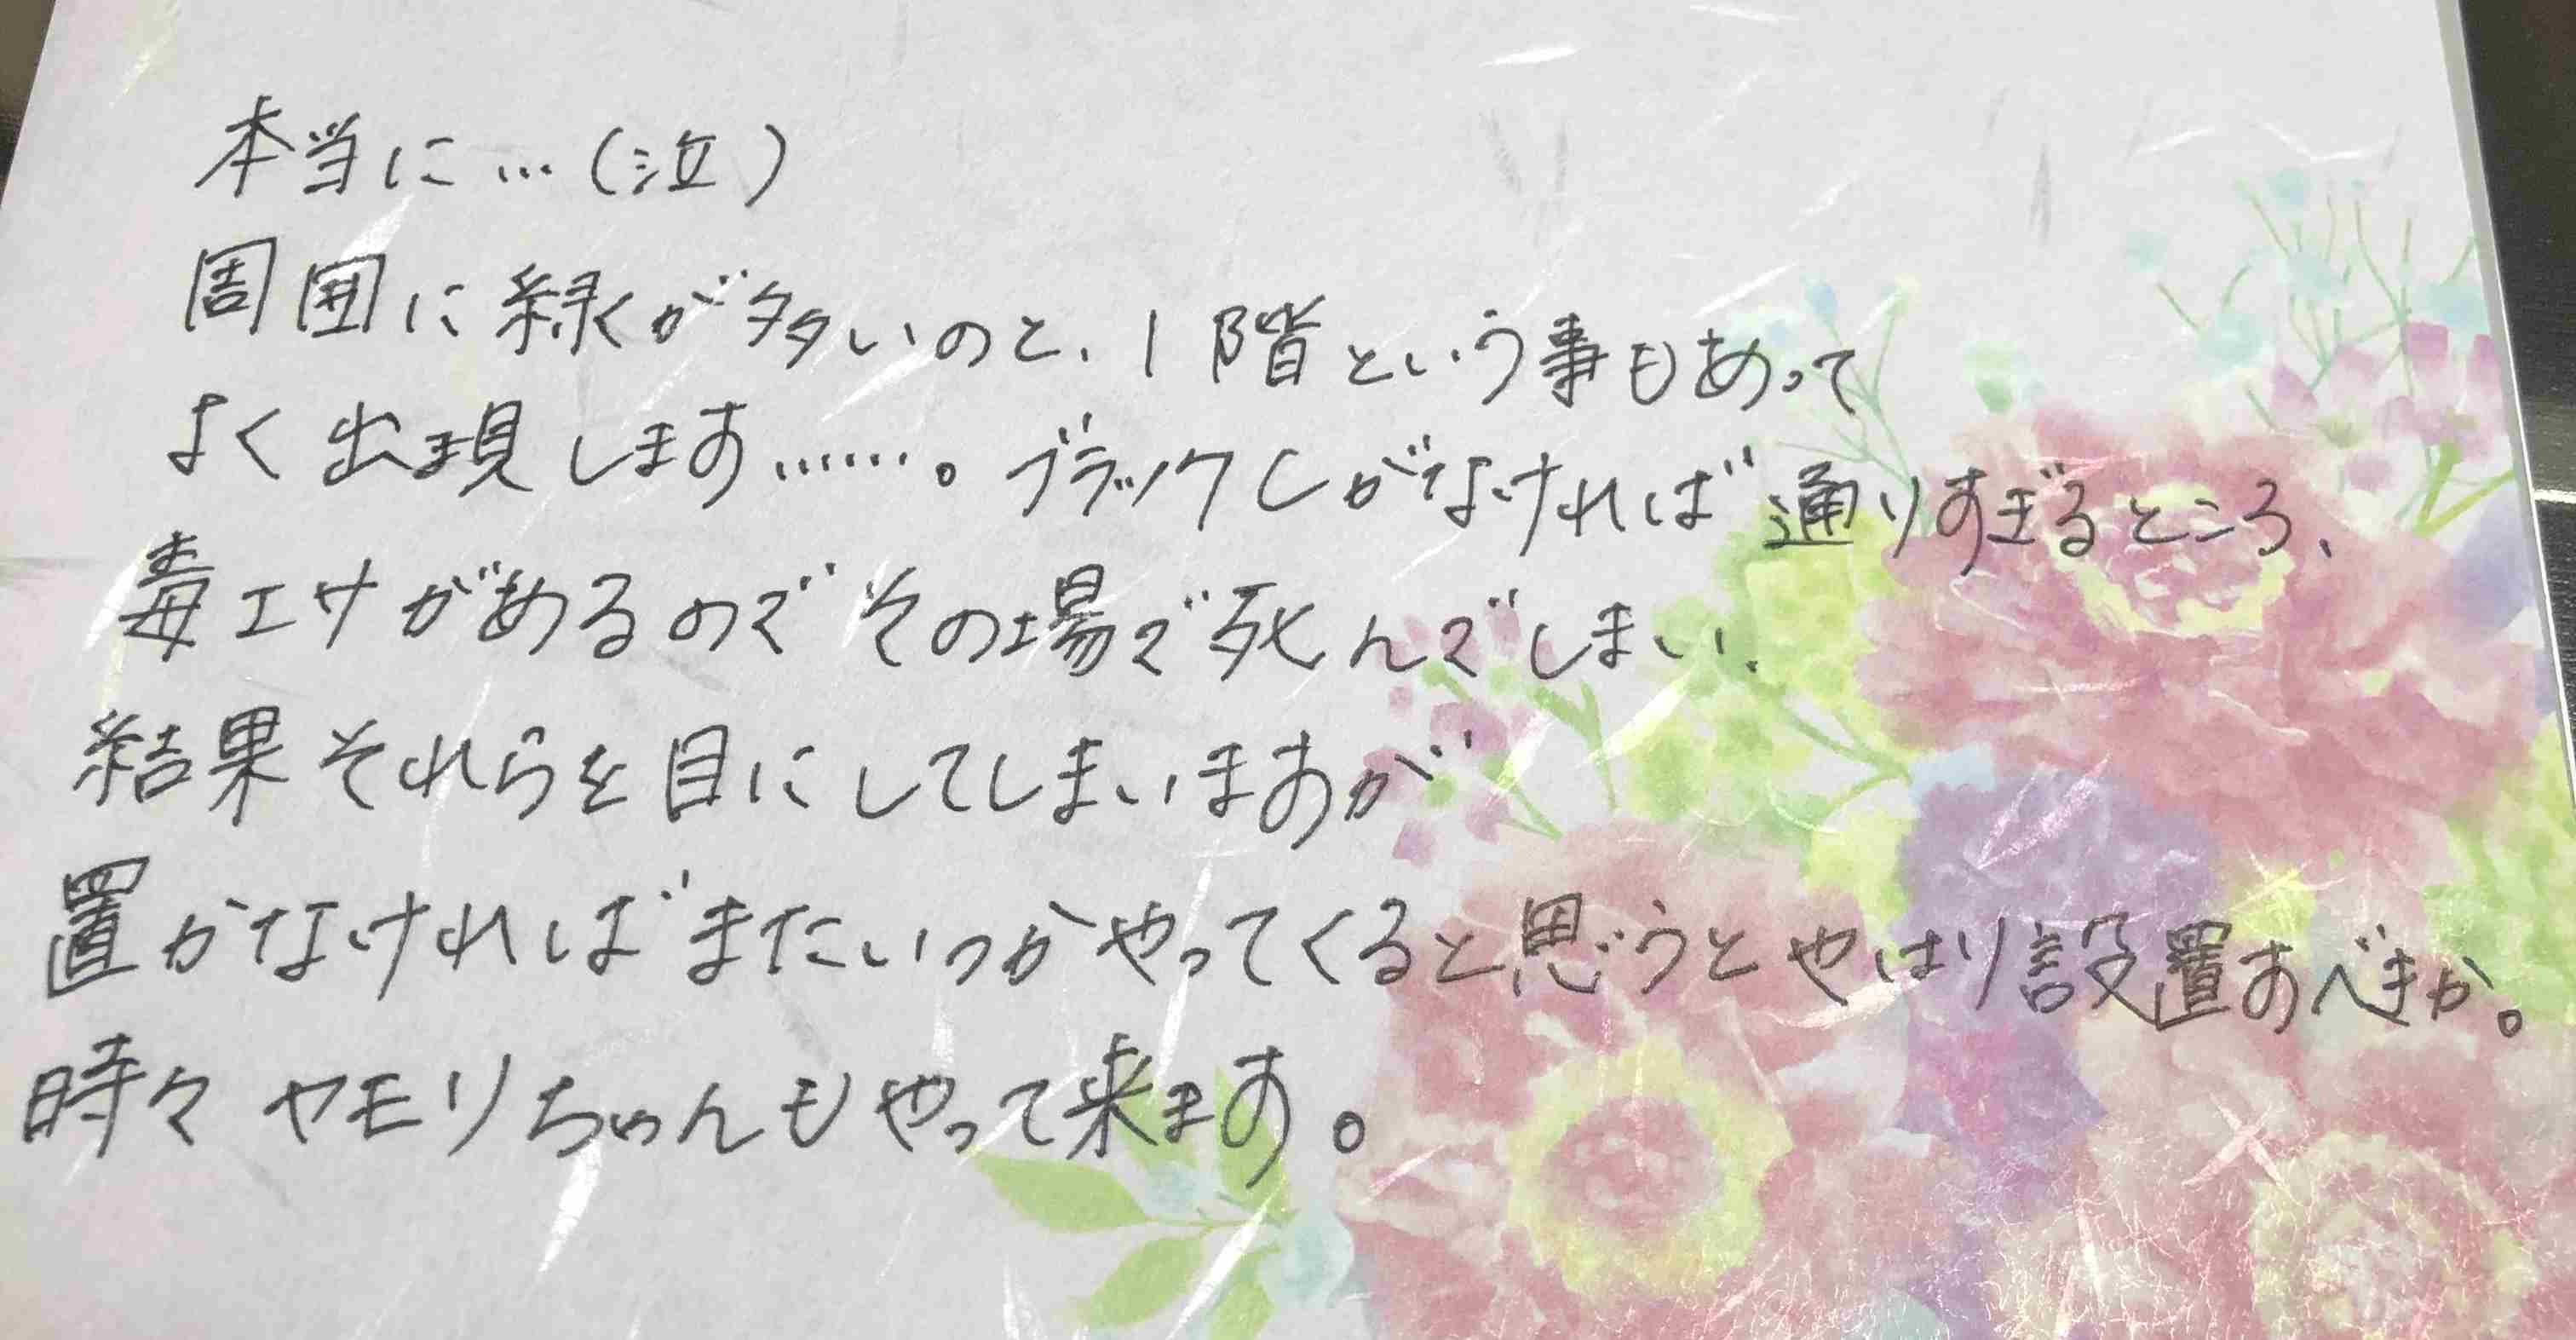 本当に…(泣)
周囲に緑が多いのと、1階という事もあって
よく出現します……。ブラックしがなければ通りすぎるところ、
毒エサがあるのでその場で死んでしまい、
結果それらを目にしてしまいますが
置かなければまたいつかやってくると思うとやはり設置すべきか。
時々ヤモリちゃんもやって来ます。